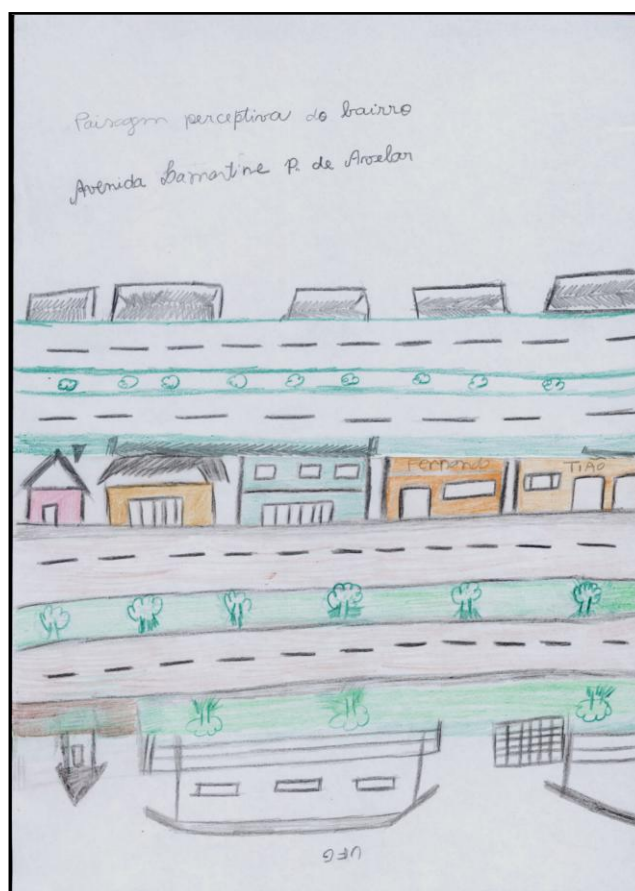 Paisagem perceptiva do bairro
Avenida Lamartine P. de Avelar
Fernando
TIAO
UFG